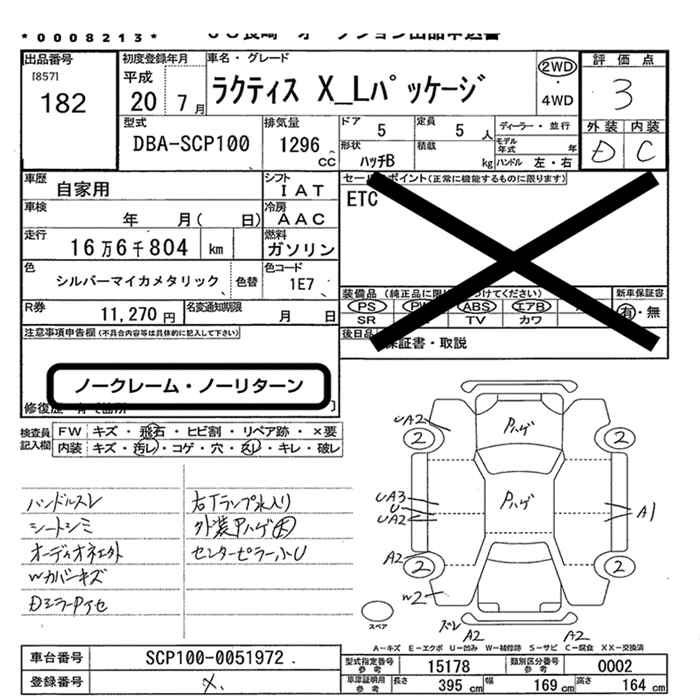 *0008213* ＵＳ長崎 オークション出品申込書
出品番号 初度登録年月 車名・グレード 評価点
[857] 平成 2WD
182 20 7月 ラクティス X_Lパッケージ ・ 3
4WD
型式 排気量 ドア 5 定員 5人 ディーラー・並行 外装 内装
DBA-SCP100 1296 cc 形状 積載 モデル年式 年 D C
ハッチB kg ハンドル 左・右
車歴 シフト セールスポイント(正常に機能するものに限ります)
自家用 IAT ETC
車検 冷房
年 月( 日) AAC
走行 燃料
16万6千804 km ガソリン
色 色替 色コード
シルバーマイカメタリック 1E7
装備品 (純正品に限 つけてください) 新車保証書
R券 11,270円 名変通知期限 月 日 PS PW ABS エアB 有・無
SR TV カワ
注意事項申告欄(不具合内容等は具体的に記入して下さい) 後日品 保証書・取説
ノークレーム・ノーリターン
修復歴
検査員記入欄 FW キズ・飛石・ヒビ割・リペア跡・×要
内装 キズ・汚レ・コゲ・穴・スレ・キレ・破レ
ハンドルスレ 右Tランプ水入り
シートシミ 外装Pハゲ大
オーディオネエカト センターピラー小U
Wカバーキズ
Dミラーアイセ
Pハゲ
UA2
2 2
Pハゲ
UA3
U
UA2 A1
A2
2 2
W2
スペア ズレ A2 A2
A－キズ E－エクボ U－凹み W－補修跡 S－サビ C－腐食 XX－交換済
車台番号 SCP100-0051972 .
型式指定番号 参考 15178 類別区分番号 参考 0002
登録番号 X.
車庫証明用 参考 長さ 395 cm 幅 169 cm 高さ 164 cm